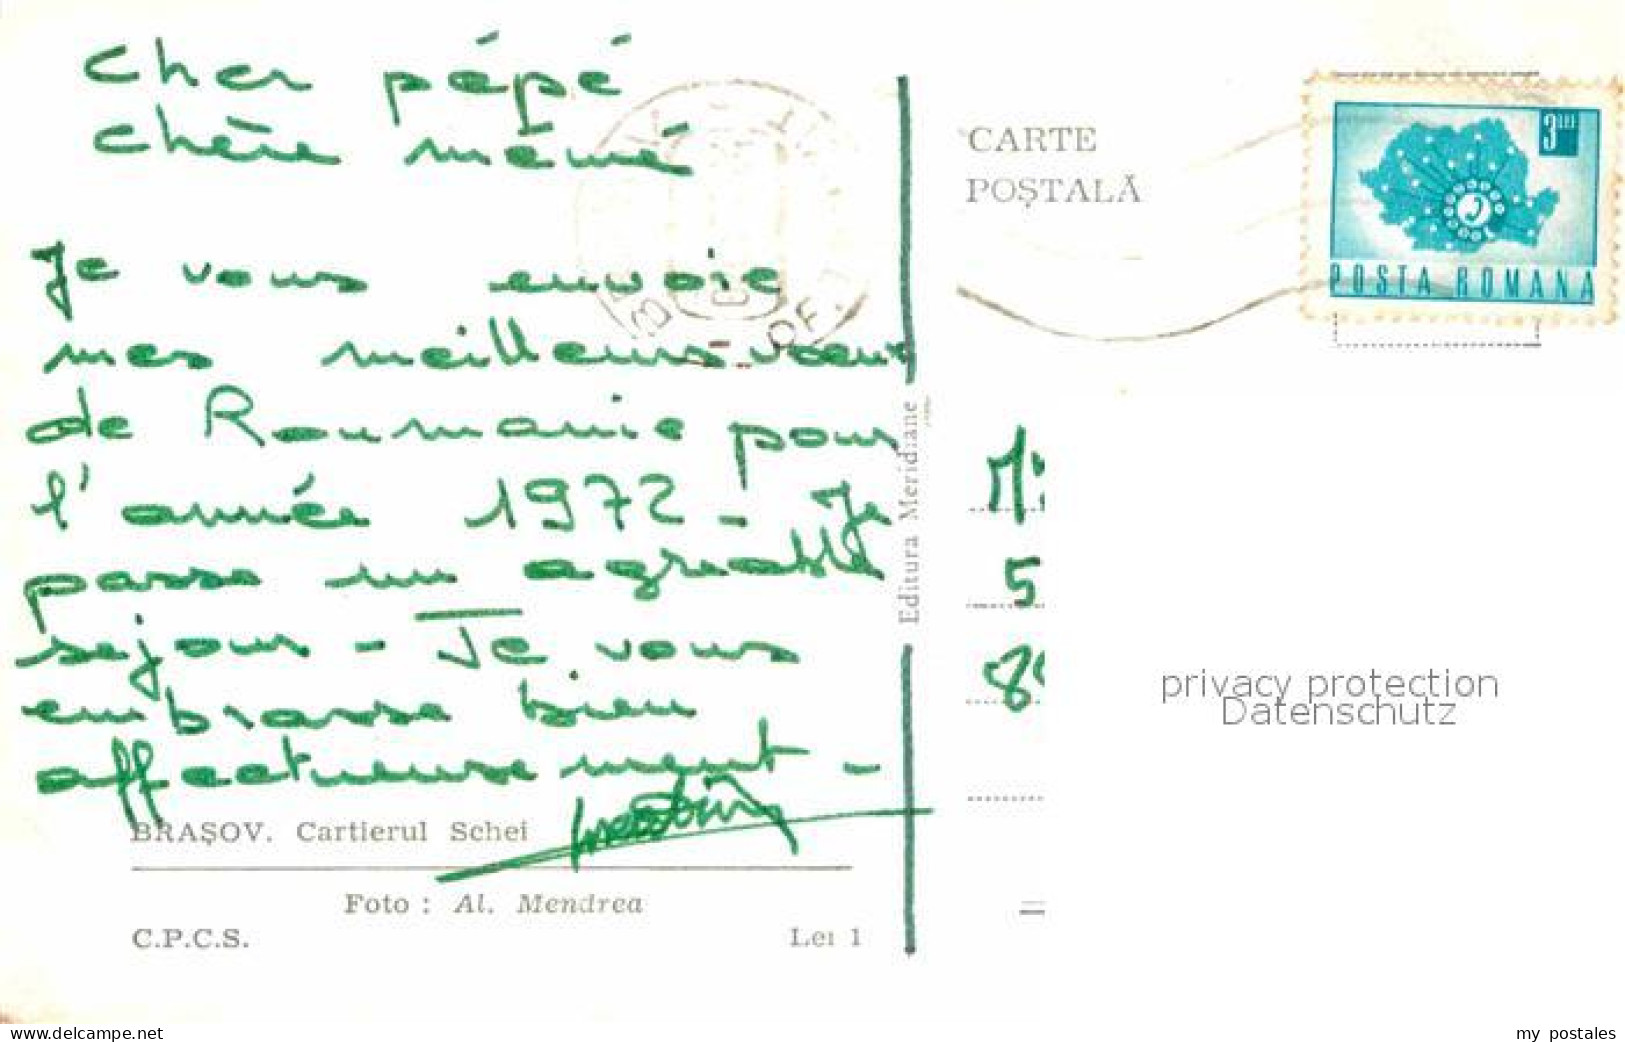 Cher pépé
chère mémé
Je vous envoie
mes meilleurs voeux
de Roumanie pour
l'année 1972 - Je
passe un agréable
séjour - Je vous
embrasse bien
affectueusement -
BRAȘOV. Cartierul Schei
Foto : Al. Mendrea
C.P.C.S.
Lei 1
Editura Meridiane
CARTE
POȘTALĂ
3 LEI
POSTA ROMANA
OF.
5
privacy protection
Datenschutz
www.delcampe.net
my_postales